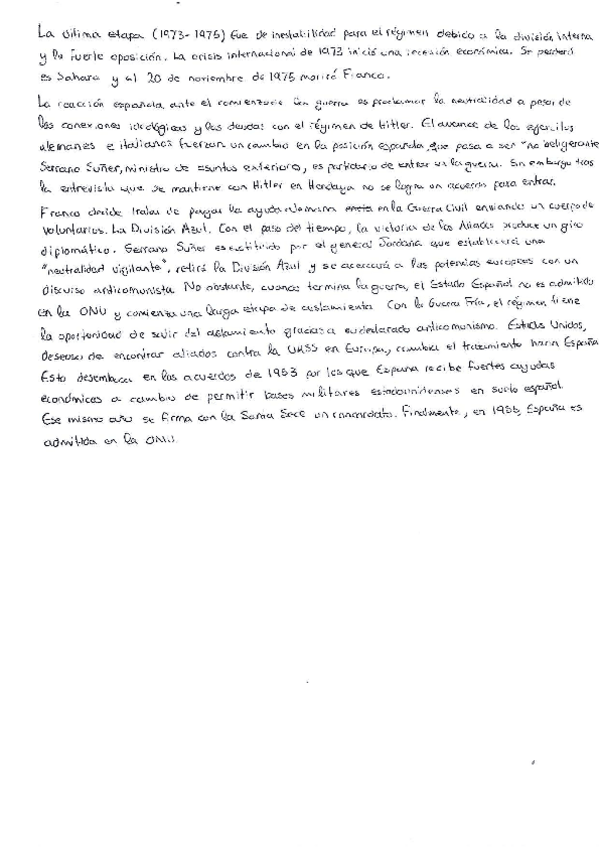 La última etapa (1973-1975) fue de inestabilidad para el régimen debido a la división interna
y la fuerte oposición. La crisis internacional de 1973 inició una recesión económica. Se perderá
es Sahara y al 20 de noviembre de 1975 morirá Franco.
La reacción española ante el comienzo de la guerra es proclamar la neutralidad a pesar de
las conexiones ideológicas y las deudas con el régimen de Hitler. El avance de los ejércitos
alemanes e italianos fuerzan un cambio en la posición española, que pasa a ser "no beligerante".
Serrano Suñer, ministro de asuntos exteriores, es partidario de entrar en la guerra. Sin embargo tras
la entrevista que se mantiene con Hitler en Hendaya no se logra un acuerdo para entrar.
Franco decide tratar de pagar la ayuda alemana en la Guerra Civil enviando un cuerpo de
voluntarios. La División Azul. Con el paso del tiempo, la victoria de los Aliados produce un giro
diplomático. Serrano Suñer es sustituido por el general Jordana que establecerá una
"neutralidad vigilante", retira la División Azul y se acercará a las potencias europeas con un
discurso anticomunista. No obstante, cuando termina la guerra, el Estado Español no es admitido
en la ONU y comienza una larga etapa de aislamiento. Con la Guerra Fría, el régimen tiene
la oportunidad de salir del aislamiento gracias a su declarado anticomunismo. Estados Unidos,
deseoso de encontrar aliados contra la URSS en Europa, cambia el tratamiento hacia España
Esto desemboca en los acuerdos de 1953 por los que España recibe fuertes ayudas
económicas a cambio de permitir bases militares estadounidenses en suelo español.
Ese mismo año se firma con la Santa Sede un concordato. Finalmente, en 1955, España es
admitida en la ONU.